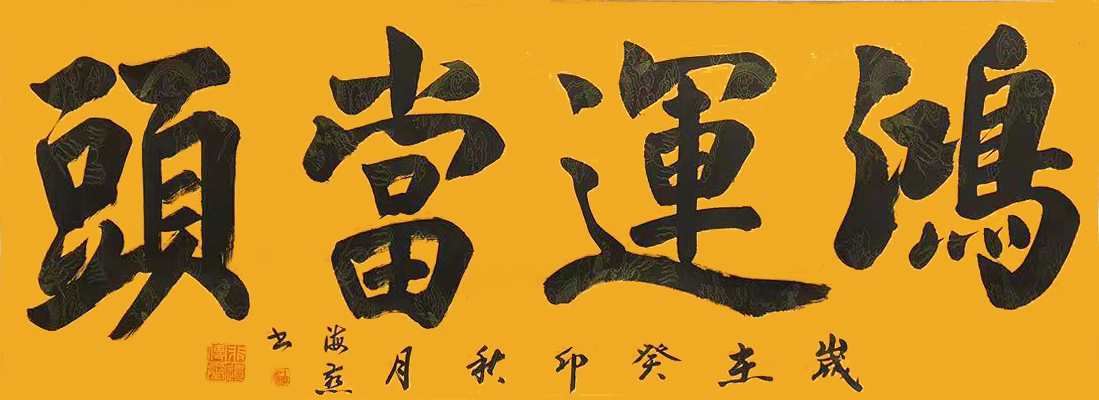 鴻運當頭
歲在癸卯秋月
海燕書